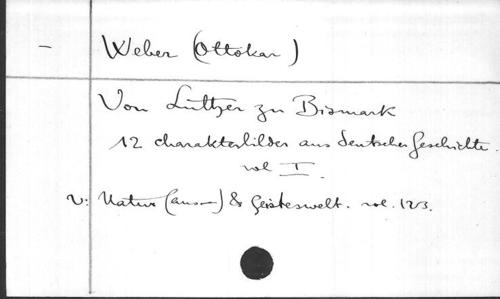 – Weber (Ottokar)
Von Luther zu Bismark
12 charakterbilder aus deutscher Geschichte.
vol I.
v: Natur (aus—) & Geisteswelt. vol. 123.